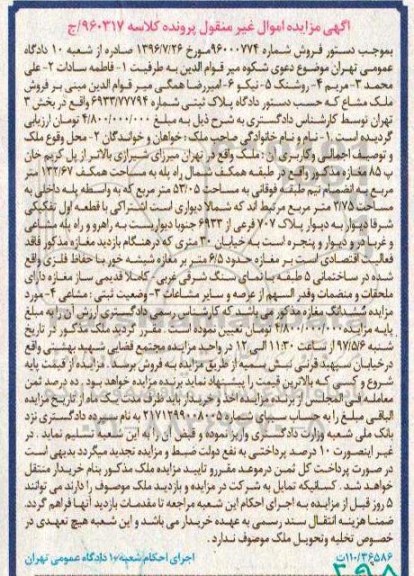 آگهی مزایده اموال غیر منقول پرونده کلاسه ۹۶۰۳۱۷/ج
بموجب دستور فروش شماره ۹۶۰۰۰۷۷۴مورخ ۱۳۹۶/۷/۲۶ صادره از شعبه ۱۰ دادگاه
عمومی تهران موضوع دعوی شکوه میر قوام الدین به طرفیت ۱- فاطمه سادات ۲- علی
محمد ۳- مریم ۴- روشنک ۵- نیکو ۶- امیررضا همگی میر قوام الدین مبنی بر فروش
ملک مشاع که حسب دستور دادگاه پلاک ثبتی شماره ۶۹۳۳/۷۷۷۹۴ واقع در بخش ۳
تهران توسط کارشناس دادگستری به شرح ذیل به مبلغ ۴/۸۰۰/۰۰۰/۰۰۰ تومان ارزیابی
گردیده است ۱- نام و نام خانوادگی صاحب ملک: خواهان و خواندگان ۲- محل وقوع ملک
و توصیف اجمالی و کاربری آن: ملک واقع در تهران میرزای شیرازی بالاتر از پل کریم خان
پ ۸۵ مغازه مذکور واقع در طبقه همکف شمال راه پله به مساحت همکف ۱۳۲/۶۷ متر
مربع به انضمام نیم طبقه فوقانی به مساحت ۵۳/۰۵ متر مربع که به واسطه پله داخلی به
مساحت ۳/۷۵ متر مربع مرتبط اند که شمالا دیواری است اشتراکی با قطعه اول تفکیکی
شرقا دیوار به دیوار پلاک ۷۰۷ فرعی از ۶۹۳۳ جنوبا دیواریست به راهرو و راه پله مشاعی
و غربا در و دیوار و پنجره است به خیابان ۳۰ متری که در هنگام بازدید مغازه مذکور فاقد
فعالیت اقتصادی است بر مغازه حدود ۶/۵ متر بر مغازه شیشه خور با حفاظ فلزی واقع
شده در ساختمانی ۵ طبقه با نمای سنگ شرقی غربی - کاملا قدیمی ساز مغازه دارای
ملحقات و منضمات و قدر السهم از عرصه و سایر مشاعات ۳- وضعیت ثبتی: مشاعی ۴- مورد
مزایده ششدانگ مغازه مذکور می باشد که کارشناس رسمی دادگستری ارزش آن را به مبلغ
پایه مزایده ۴/۸۰۰/۰۰۰/۰۰۰ تومان تعیین نموده است. مقرر گردید ملک مذکور در تاریخ
۹۷/۵/۶ شنبه از ساعت ۱۱:۳۰ الی ۱۲ در واحد مزایده مجتمع قضایی شهید بهشتی واقع
در خیابان سپهبد قرنی نبش سمیه از طریق مزایده به فروش برسد. مزایده از قیمت پایه
شروع و کسی که بالاترین قیمت را پیشنهاد نماید برنده مزایده خواهد بود. ده درصد ثمن
معامله فی المجلس از برنده مزایده اخذ و خریدار باید ظرف مدت یک ماه از تاریخ مزایده
الباقی مبلغ را به حساب سپای شماره ۲۱۷۱۲۹۹۰۰۸۰۰۵ به نام سپرده دادگستری نزد
بانک ملی شعبه وزارت دادگستری واریز نموده و قبض آن را به این شعبه تسلیم نماید. در
غیر اینصورت ۱۰ درصد پرداختی به نفع دولت ضبط و مزایده تجدید میگردد بدیهی است
در صورت پرداخت کل ثمن در موعد مقرر و تایید مزایده ملک مذکور بنام خریدار منتقل
خواهد شد. کسانیکه تمایل به شرکت در مزایده و بازدید ملک موصوف را دارند می توانند
۵ روز قبل از مزایده به اجرای احکام این شعبه مراجعه تا مقدمات بازدید آنها فراهم گردد.
ضمنا هزینه انتقال سند رسمی به عهده خریدار می باشد و این شعبه هیچ تعهدی در
خصوص تخلیه و تحویل ملک موصوف ندارد.
۱۱۰/۳۶۵۸۶ت اجرای احکام شعبه ۱۰ دادگاه عمومی تهران